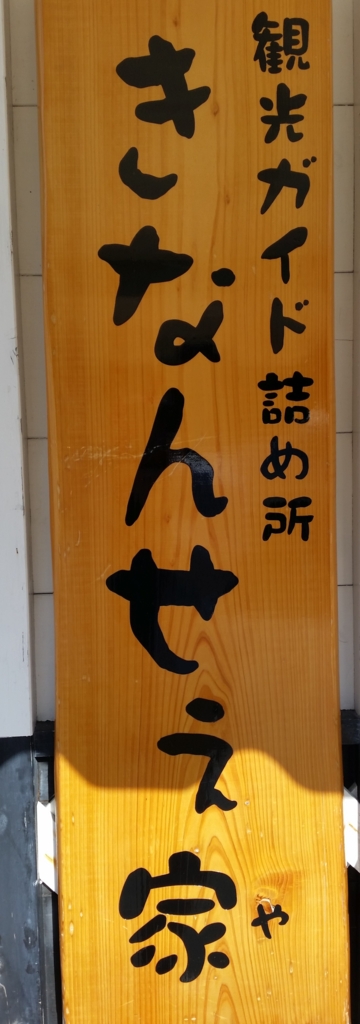 観光ガイド詰め所
きなんせぇ家
や